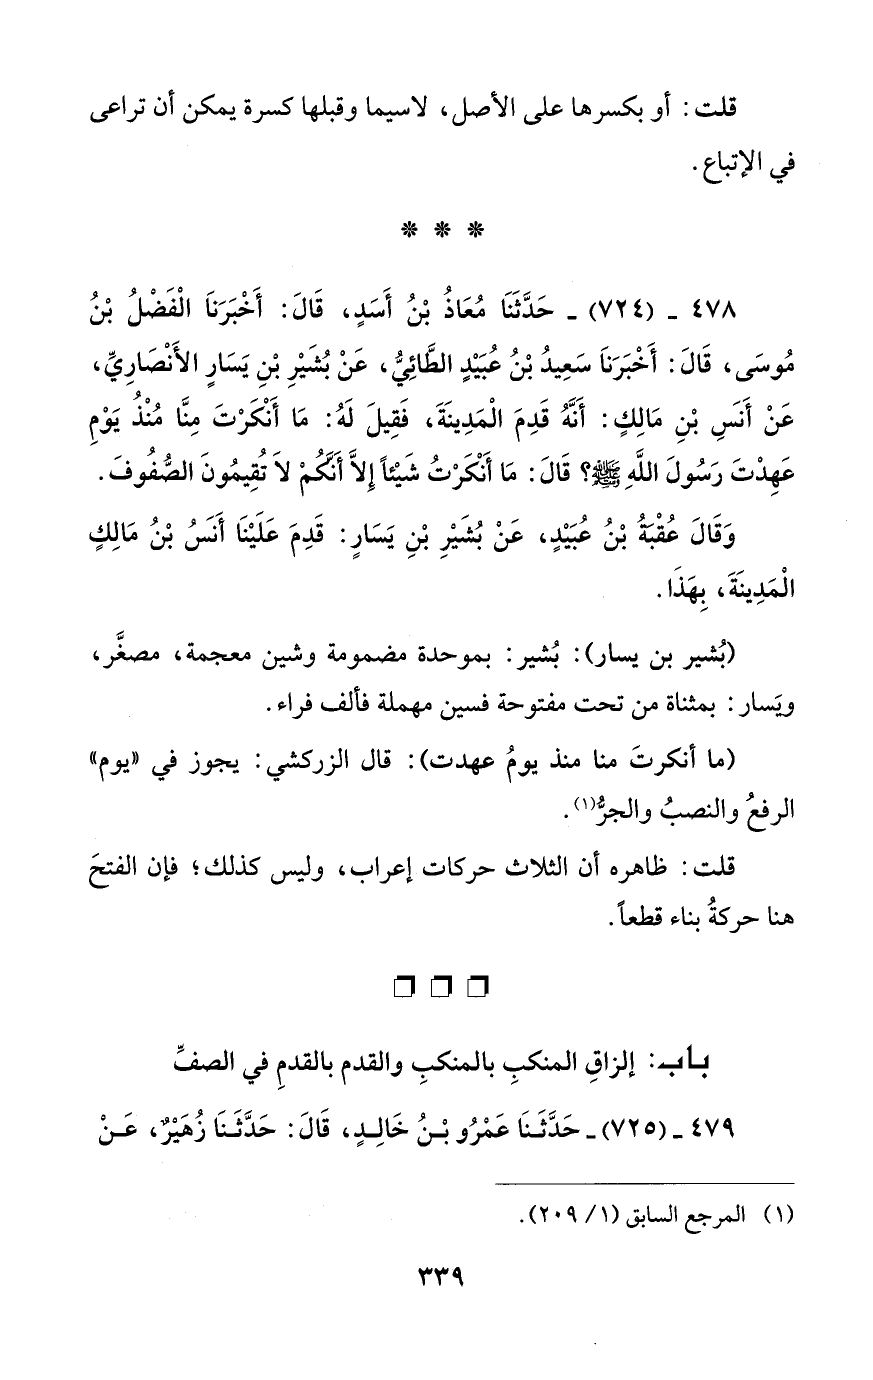 قلت: أو بكسرها على الأصل، لاسيما وقبلها كسرة يمكن أن تراعى
في الإتباع.
* * *
٤٧٨ ـ (٧٢٤) ـ حَدَّثَنَا مُعَاذُ بْنُ أَسَدٍ، قَالَ: أَخْبَرَنَا الْفَضْلُ بْنُ
مُوسَى، قَالَ: أَخْبَرَنَا سَعِيدُ بْنُ عُبَيْدٍ الطَّائِيُّ، عَنْ بُشَيْرِ بْنِ يَسَارٍ الأَنْصَارِيِّ،
عَنْ أَنَسِ بْنِ مَالِكٍ: أَنَّهُ قَدِمَ الْمَدِينَةَ، فَقِيلَ لَهُ: مَا أَنْكَرْتَ مِنَّا مُنْذُ يَوْمِ
عَهِدْتَ رَسُولَ اللَّهِ ﷺ؟ قَالَ: مَا أَنْكَرْتُ شَيْئاً إِلاَّ أَنَّكُمْ لاَ تُقِيمُونَ الصُّفُوفَ.
وَقَالَ عُقْبَةُ بْنُ عُبَيْدٍ، عَنْ بُشَيْرِ بْنِ يَسَارٍ: قَدِمَ عَلَيْنَا أَنَسُ بْنُ مَالِكٍ
الْمَدِينَةَ، بِهَذَا.
(بُشير بن يسار): بُشير: بموحدة مضمومة وشين معجمة، مصغَّر،
ويَسار: بمثناة من تحت مفتوحة فسين مهملة فألف فراء.
(ما أنكرتَ منا منذ يومُ عهدت): قال الزركشي: يجوز في «يوم»
الرفعُ والنصبُ والجرُّ(١).
قلت: ظاهره أن الثلاث حركات إعراب، وليس كذلك؛ فإن الفتحَ
هنا حركةُ بناء قطعاً.
باب: إلزاقِ المنكبِ بالمنكبِ والقدم بالقدمِ في الصفِّ
٤٧٩ ـ (٧٢٥) ـ حَدَّثَنَا عَمْرُو بْنُ خَالِدٍ، قَالَ: حَدَّثَنَا زُهَيْرٌ، عَنْ
(١) المرجع السابق (١/ ٢٠٩).
٣٣٩